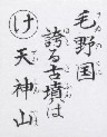 毛野国
誇る古墳は
け 天神山